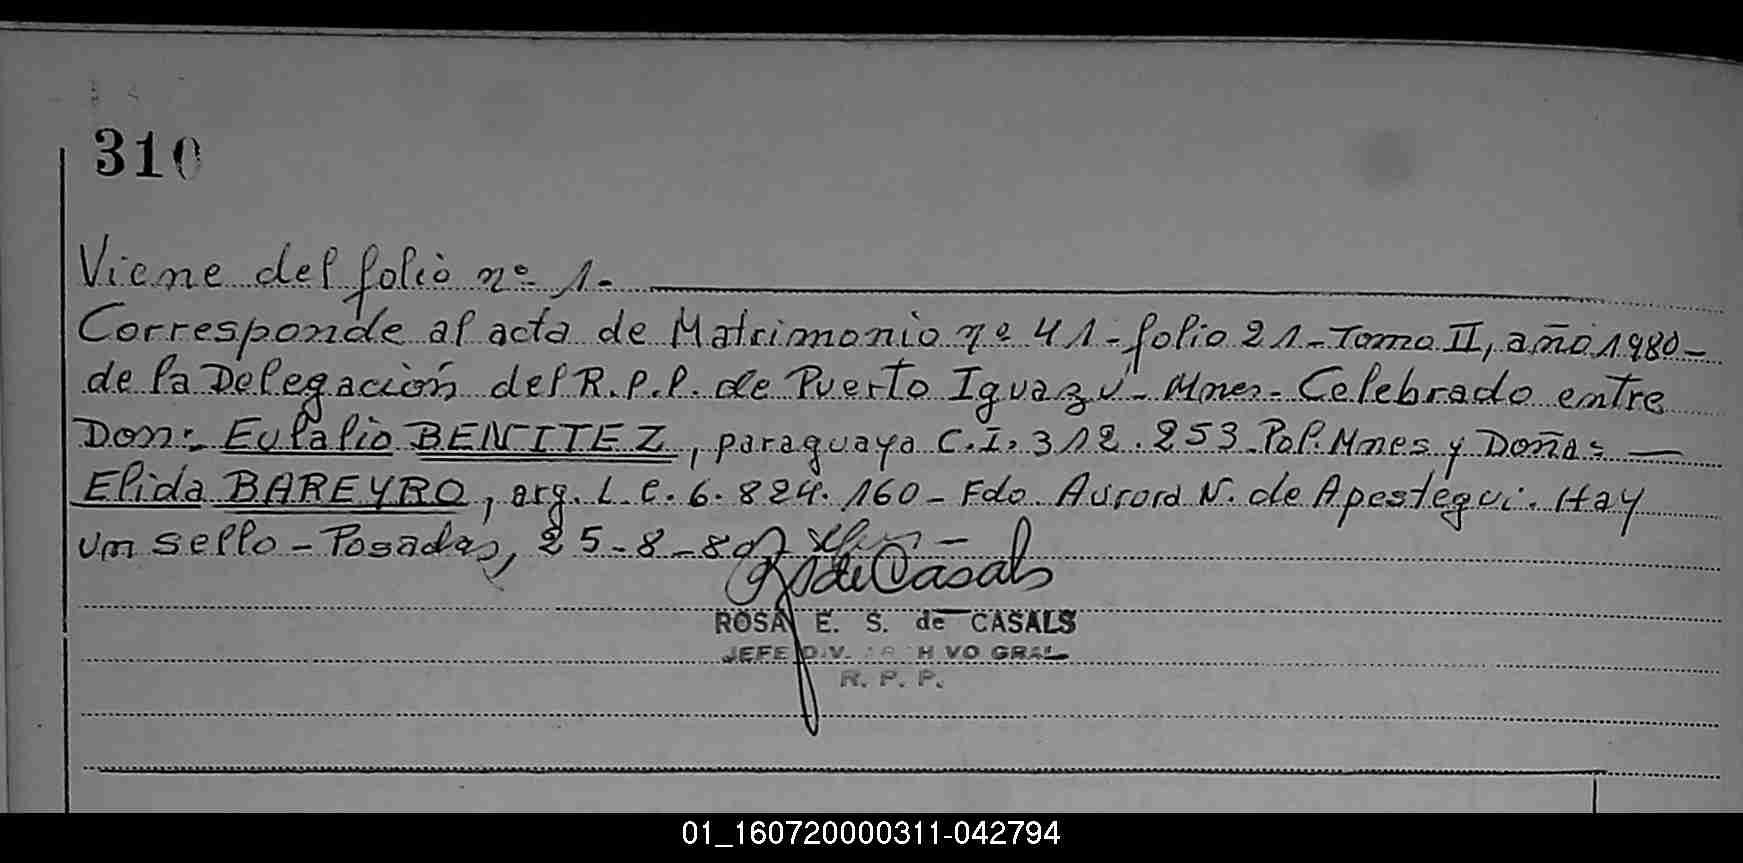 310
Viene del folio nº 1.
Corresponde al acta de Matrimonio nº 41 - folio 21 - Tomo II, año 1980 -
de la Delegación del R.P.P. de Puerto Iguazú - Mnes. Celebrado entre
Don: Eulalio BENITEZ, paraguayo C.I. 312.253 Pol. Mnes y Doña: —
Elida BAREYRO, arg. L.C. 6.824.160 - Fdo. Aurora N. de Apestegui. Hay
un sello - Posadas, 25-8-80
R de Casals
ROSA E. S. de CASALS
JEFE DIV. ARCHIVO GRAL
R. P. P.
01_160720000311-042794